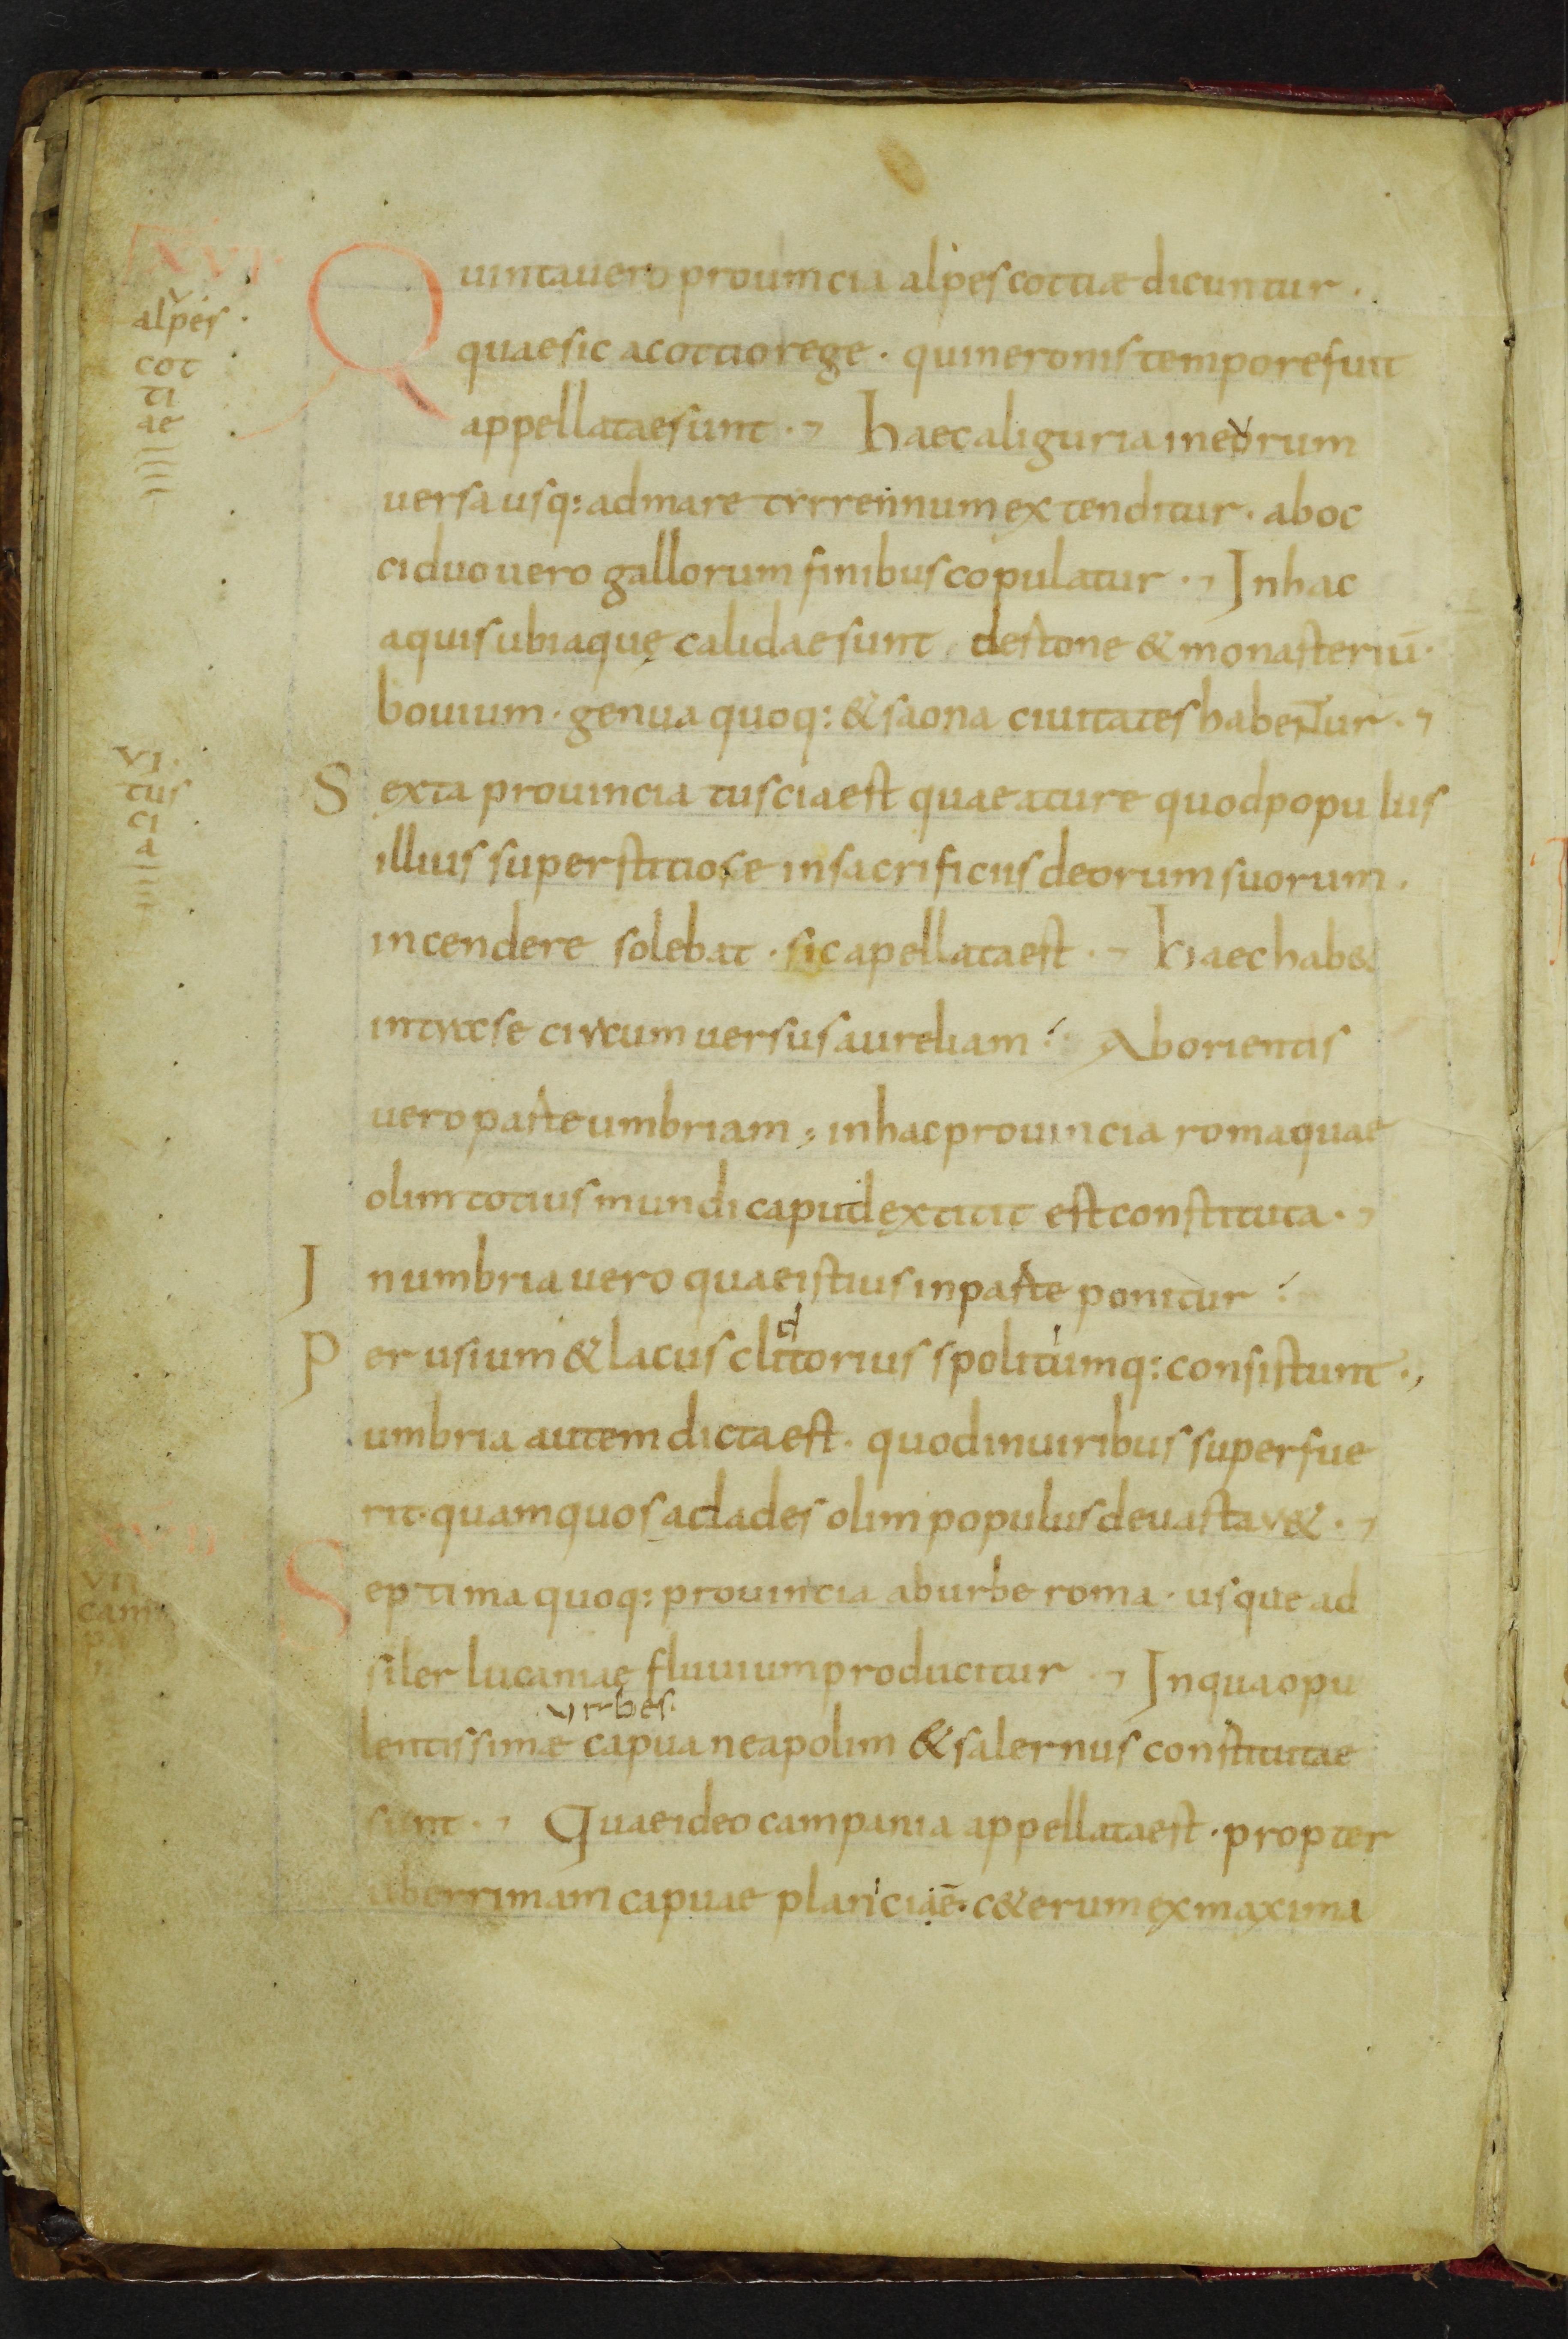 XVI.
V
alpes.
cot
ti
ae
Quinta uero prouincia alpes cottiæ dicuntur.
quae sic a cottio rege. qui neronis tempore fuit
appellatae sunt. haec a liguria in eorum
uersa usq: ad mare tyrrennum extenditur. ab oc
ciduo uero gallorum finibus copulatur. In hac
aquis ubi aquę calidae sunt destone & monasteriū.
bouium. genua quoq: & saona ciuitates habentur.
VI.
tus
ci
a
Sexta prouincia tuscia est quae a ture quod populus
illius superstitiose in sacrificiis deorum suorum.
incendere solebat. sic apellata est. haec hab&
intra se circum uersus aureliam. Ab orientis
uero parte umbriam. in hac prouincia roma quae
olim totius mundi capud extitit est constituta.
In umbria uero quae istius in parte ponitur
Perusium & lacus clitorius spolitiumq: consistunt.
umbria autem dicta est. quod inuiribus superfue
rit. quam quos aclades olim populus deuastar&.
XVII
VII
cam
Septima quoq: prouincia ab urbe roma. usque ad
siler lucaniae fluuium producitur. In qua opu
urbes.
lentissimæ capua neapolim & salernus constitutae
sunt. Quae ideo campania appellata est. propter
uberrimam capuae planiciāe. c&erum ex maxima